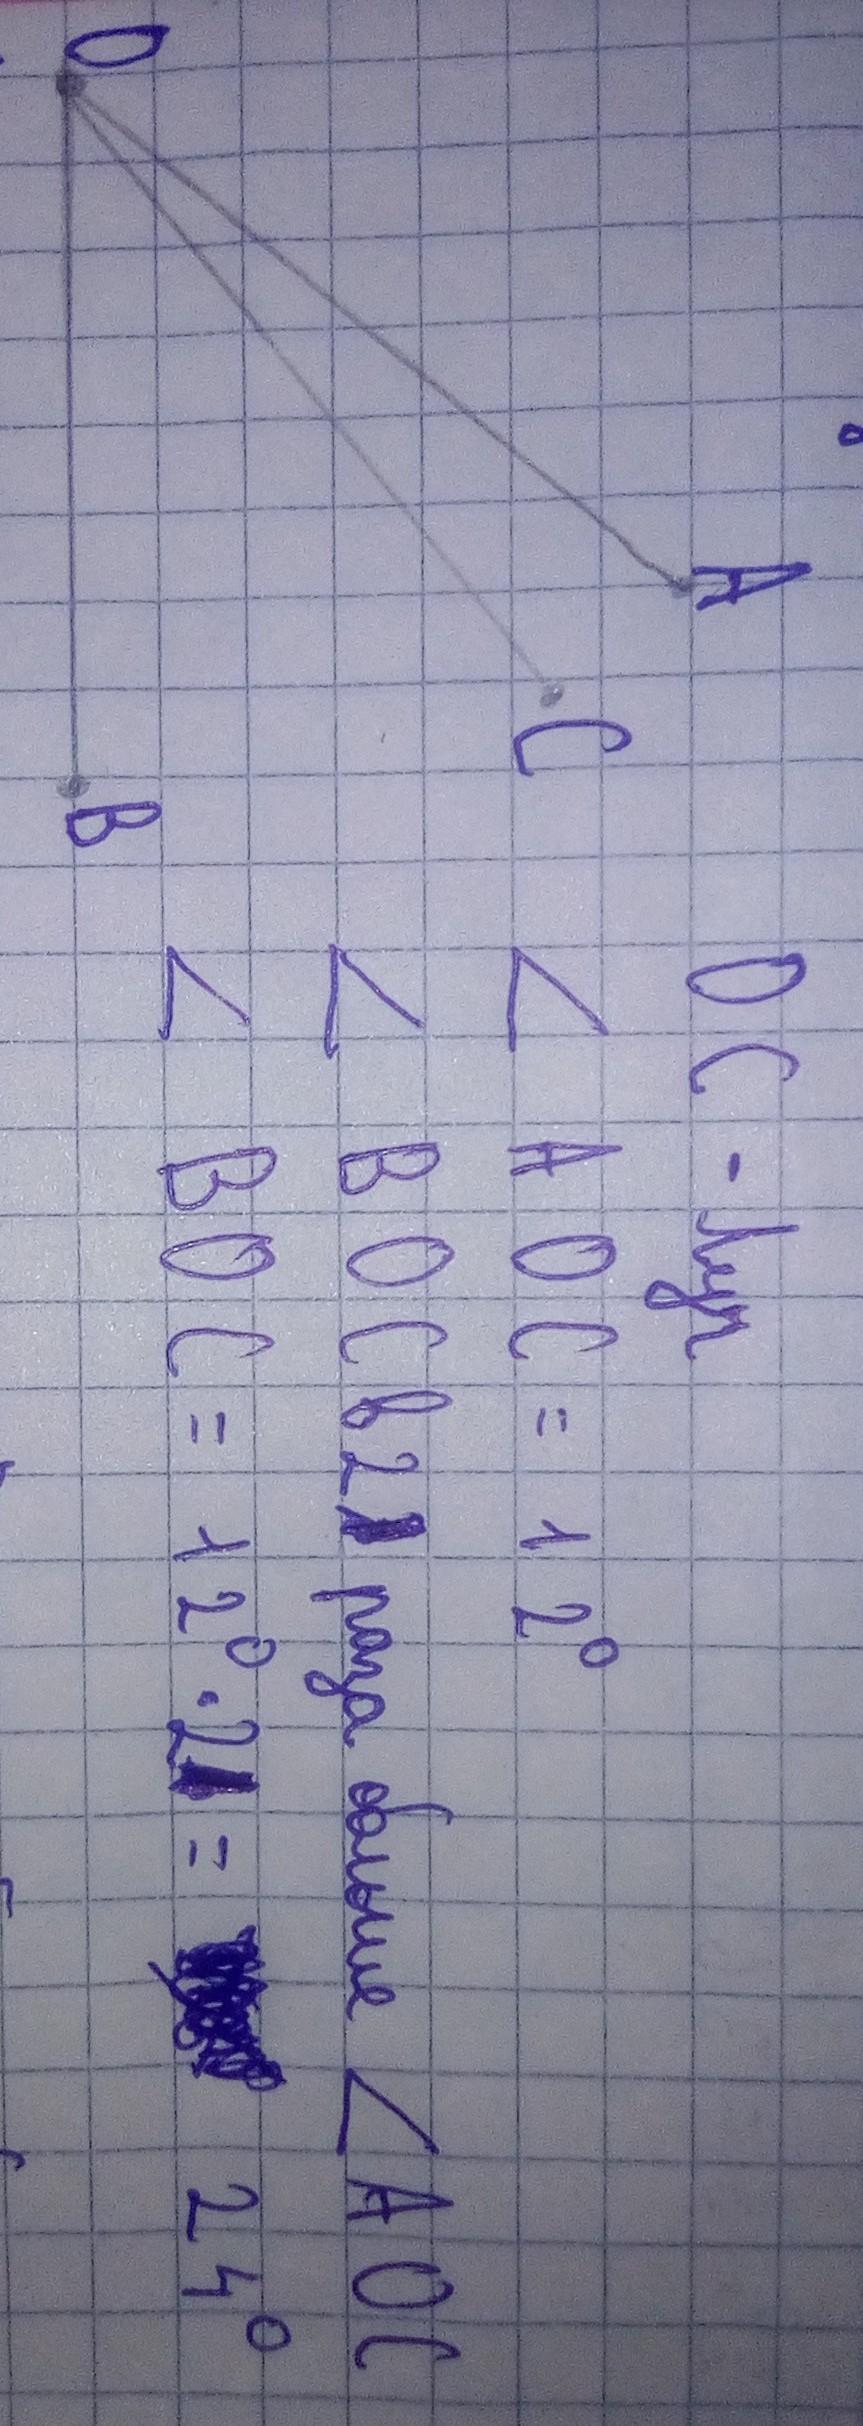 O
A
C
B
OC - луч
∠ AOC = 12°
∠ BOC в 2 раза больше ∠AOC
∠ BOC = 12° · 2 = 24°